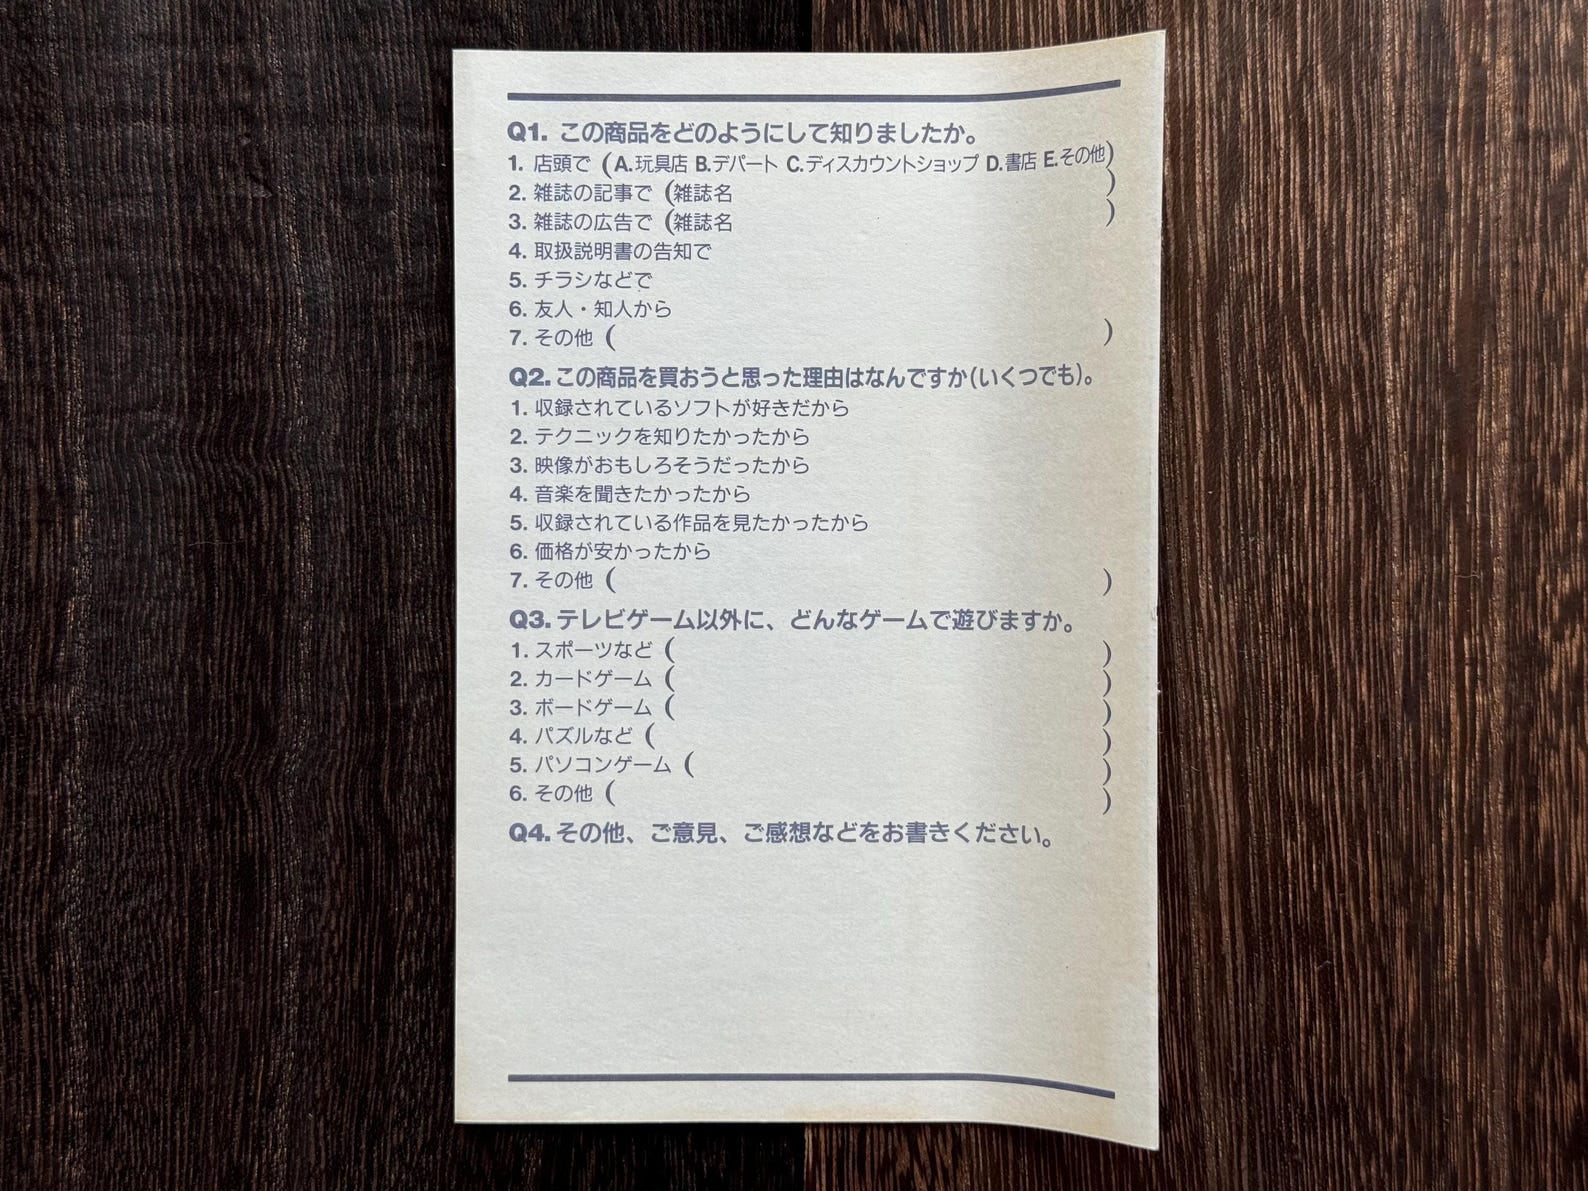 Q1. この商品をどのようにして知りましたか。
1. 店頭で (A.玩具店 B.デパート C.ディスカウントショップ D.書店 E.その他)
2. 雑誌の記事で (雑誌名 )
3. 雑誌の広告で (雑誌名 )
4. 取扱説明書の告知で
5. チラシなどで
6. 友人・知人から
7. その他 ( )
Q2. この商品を買おうと思った理由はなんですか(いくつでも)。
1. 収録されているソフトが好きだから
2. テクニックを知りたかったから
3. 映像がおもしろそうだったから
4. 音楽を聞きたかったから
5. 収録されている作品を見たかったから
6. 価格が安かったから
7. その他 ( )
Q3. テレビゲーム以外に、どんなゲームで遊びますか。
1. スポーツなど ( )
2. カードゲーム ( )
3. ボードゲーム ( )
4. パズルなど ( )
5. パソコンゲーム ( )
6. その他 ( )
Q4. その他、ご意見、ご感想などをお書きください。